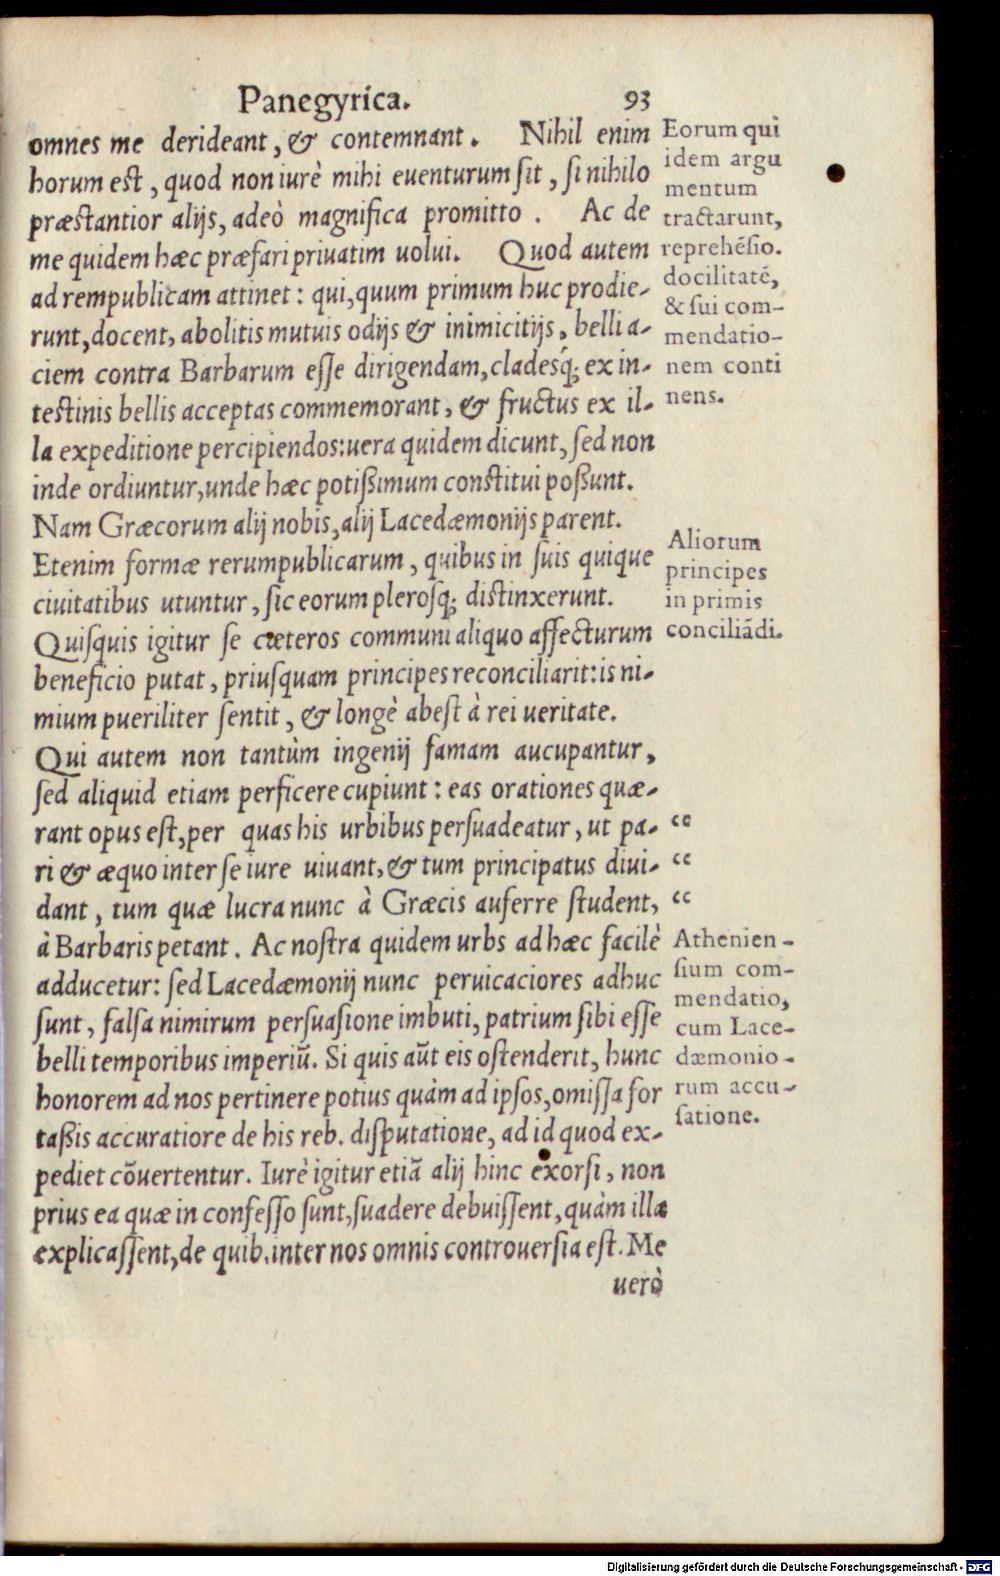 Panegyrica. 93
omnes me derideant, & contemnant. Nihil enim
horum est, quod non iurè mihi euenturum sit, si nihilo
præstantior alijs, adeò magnifica promitto. Ac de
me quidem hæc præfari priuatim uolui. Quod autem
ad rempublicam attinet: qui, quum primum huc prodie-
runt, docent, abolitis mutuis odijs & inimicitijs, belli a-
ciem contra Barbarum esse dirigendam, cladesq́; ex in-
testinis bellis acceptas commemorant, & fructus ex il-
la expeditione percipiendos: uera quidem dicunt, sed non
inde ordiuntur, unde hæc potißimum constitui poßunt.
Nam Græcorum alij nobis, alij Lacedæmonijs parent.
Etenim formæ rerumpublicarum, quibus in suis quique
ciuitatibus utuntur, sic eorum plerosq; distinxerunt.
Quisquis igitur se cæteros communi aliquo affecturum
beneficio putat, priusquam principes reconciliarit: is ni-
mium pueriliter sentit, & longè abest à rei ueritate.
Qui autem non tantùm ingenij famam aucupantur,
sed aliquid etiam perficere cupiunt: eas orationes quæ-
rant opus est, per quas his urbibus persuadeatur, ut pa- “
ri & æquo inter se iure uiuant, & tum principatus diui- “
dant, tum quæ lucra nunc à Græcis auferre student, “
à Barbaris petant. Ac nostra quidem urbs ad hæc facilè
adducetur: sed Lacedæmonij nunc peruicaciores adhuc
sunt, falsa nimirum persuasione imbuti, patrium sibi esse
belli temporibus imperiū. Si quis aūt eis ostenderit, hunc
honorem ad nos pertinere potius quàm ad ipsos, omissa for
taßis accuratiore de his reb. disputatione, ad id quod ex-
pediet cōuertentur. Iurè igitur etiā alij hinc exorsi, non
prius ea quæ in confesso sunt, suadere debuissent, quàm illa
explicassent, de quib. inter nos omnis controuersia est. Me
uerò
Eorum qui
idem argu
mentum
tractarunt,
reprehēsio.
docilitatē,
& sui com-
mendatio-
nem conti
nens.
Aliorum
principes
in primis
conciliādi.
Athenien-
sium com-
mendatio,
cum Lace-
dæmonio-
rum accu-
satione.
Digitalisierung gefördert durch die Deutsche Forschungsgemeinschaft - DFG